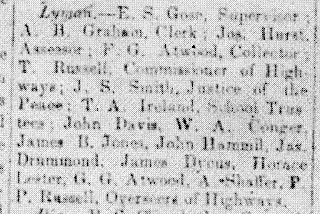 Lyman.—E. S. Gose, Supervisor;
A. B. Graham, Clerk; Jos. Hurst,
Assessor; F. G. Atwood, Collector;
T. Russell, Commissioner of High-
ways; J. S. Smith, Justice of the
Peace; T. A. Ireland, School Trus
tees; John Davis, W. A. Conger,
James B. Jones, John Hammil, Jas.
Drummond, James Dycus, Horace
Lester, G. G. Atwood, A Shaffer, P
P. Russell, Overseers of Highways.